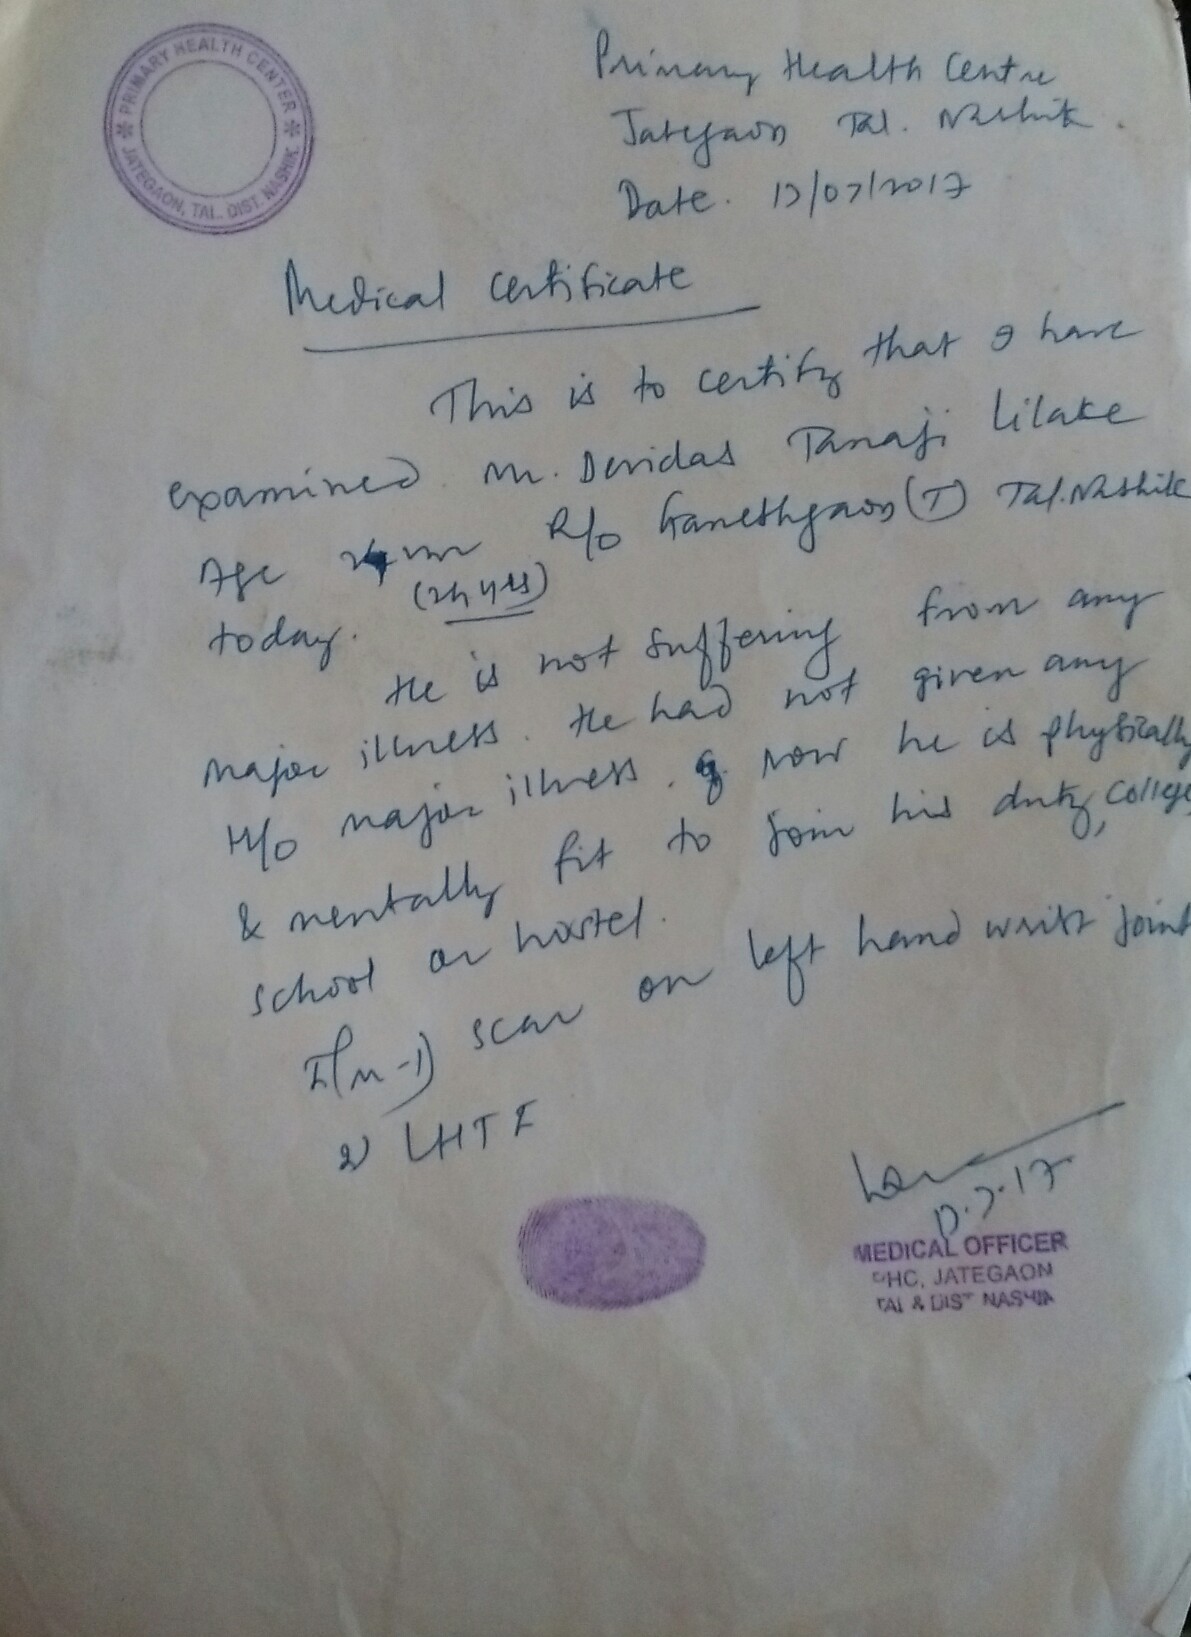 PRIMARY HEALTH CENTER
JATEGAON, TAL. DIST. NASHIK
Primary Health Centre
Jategaon Tal. Nashik.
Date. 17/07/2017
Medical Certificate
This is to certify that I have
examined Mr. Devidas Tanaji Lilake
Age R/o Ganeshgaon (T) Tal. Nashik
(24 yrs)
today.
He is not suffering from any
major illness. He had not given any
H/o major illness. now he is physically
& mentally fit to join his duty, College,
school or hostel.
I(m-1) scar on left hand wrist joint
2) LHTI
MEDICAL OFFICER
PHC, JATEGAON
TAL & DIST NASHIK